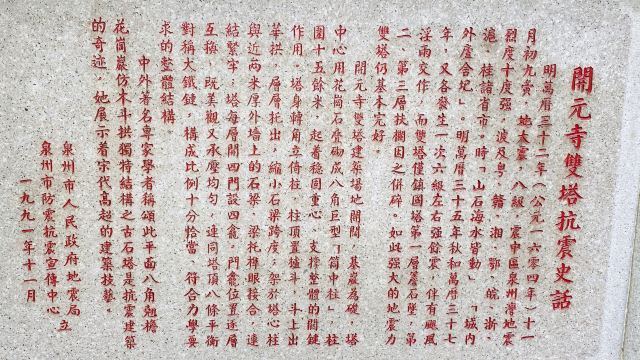 開元寺雙塔抗震史話
明萬曆三十二年（公元一六零四年）十一
月初九震，地大震，八級，震中區泉州灣地震
烈度十度强，波及粤、贛、湘、鄂、皖、浙、
滬、桂諸省市。時「山石海水皆動」，「城内
外廬舍圮」。明萬曆三十五年秋和萬曆三十七
年，又各發生一次六級左右强餘震，伴有颶風
淫雨交作，而雙塔僅鎮國塔第一層簷石墜，第
二、第三層扶欄因之併碎。如此强大的地震力
雙塔仍基本完好。
開元寺雙塔建築場地開闊，基巖為礎，塔
中心用花崗石壘砌成八角巨型「筒中柱」，柱
圍十五餘米，起着穩固重心、支撑整體的關鍵
作用。塔身轉角立倚柱，柱頂置爐斗，斗上出
華拱，層層托出，縮小石梁跨度；架於塔心柱
與近兩米厚外墻上的石梁，梁托榫眼接合，連
結緊牢，塔每層開四門設四龕，門龕位置逐層
互换，既美觀又承壓均匀，連同塔頂八條平衡
對稱大鐵鏈，構成比例十分恰當、符合力學要
求的整體結構。
中外著名專家學者稱頌此平面八角翹檐
花崗巖仿木斗拱獨特結構之古石塔是抗震建築
的奇迹，她展示着宋代高超的建築技藝。
泉州市人民政府地震局
泉州市防震抗震宣傳中心
立
一九九一年十一月